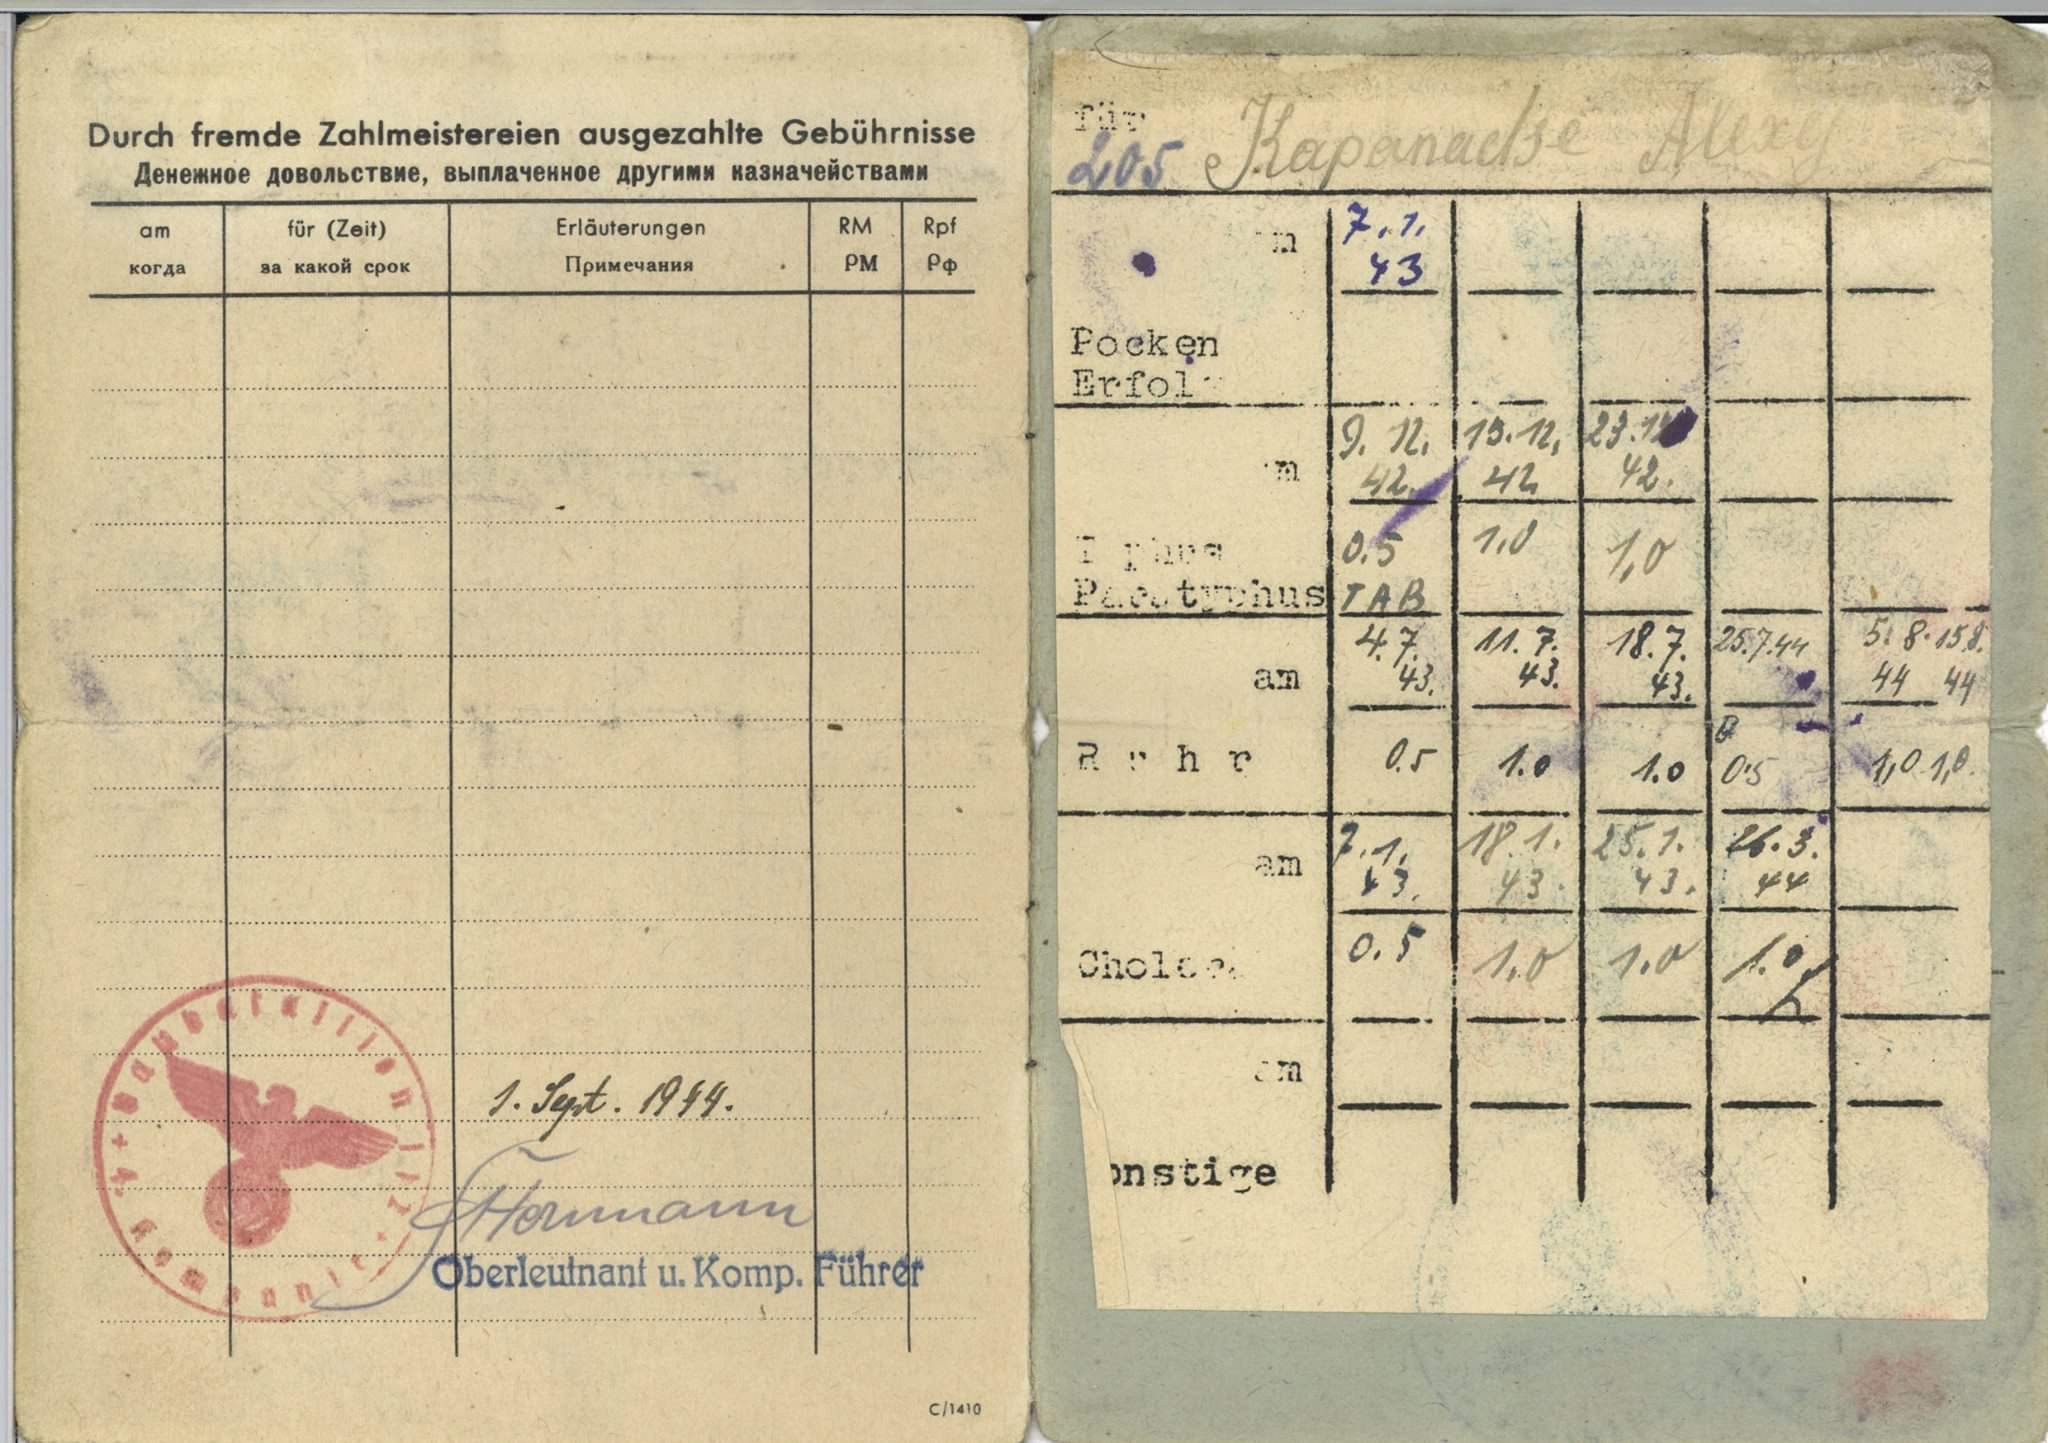 Durch fremde Zahlmeistereien ausgezahlte Gebührnisse
Денежное довольствие, выплаченное другими казначействами
am für (Zeit) Erläuterungen RM Rpf
когда за какой срок Примечания РМ Рф
1. Sept. 1944.
Oberleutnant u. Komp. Führer
C/1410
für
205 Kapanadse Alexy
7.1.
43
Pocken
Erfol
9. 12. 15. 12. 23. 12
42. 42 42.
0.5 1,0 1,0
Paratyphus TAB
4.7. 11.7. 18.7. 25.7.44 5.8. 15.8.
am 43. 43. 43. 44 44
Ruhr 0.5 1.0 1.0 0.5 1,0 1,0
7.1. 18.1. 25.1. 26.3.
am 43. 43. 43. 44
0.5
Cholera 1,0 1,0 1.0
am
onstige